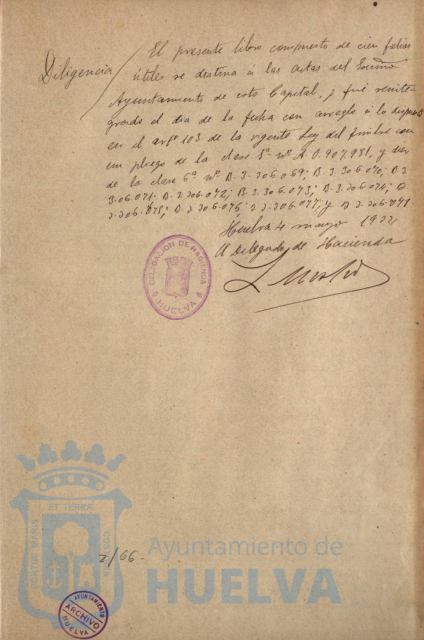 Diligencia / El presente libro compuesto de cien folios
útiles se destina á las actas del Excmo
Ayuntamiento de esta Capital, y fué reinte-
grado el día de la fecha con arreglo á lo dispuesto
en el artº 103 de la vigente Ley del timbre con
un pliego de la clase 1ª nº A.0.907.981, y
de la clase 6ª nº B.3.306.069; B.3.306.070; B.3
306.071; B.3.306.072; B.3.306.073; B.3.306.074; B
3.306.075; B.3.306.076; B.3.306.077, y B.3.306.078.
Huelva 4 mayo 1922
El Delegado de Hacienda
DELEGACIÓN DE HACIENDA
HUELVA
ET TERRAE
PORTUS MARIS
CUSTODIA
2/66-
Ayuntamiento de
HUELVA
AYUNTAMIENTO
ARCHIVO
HUELVA